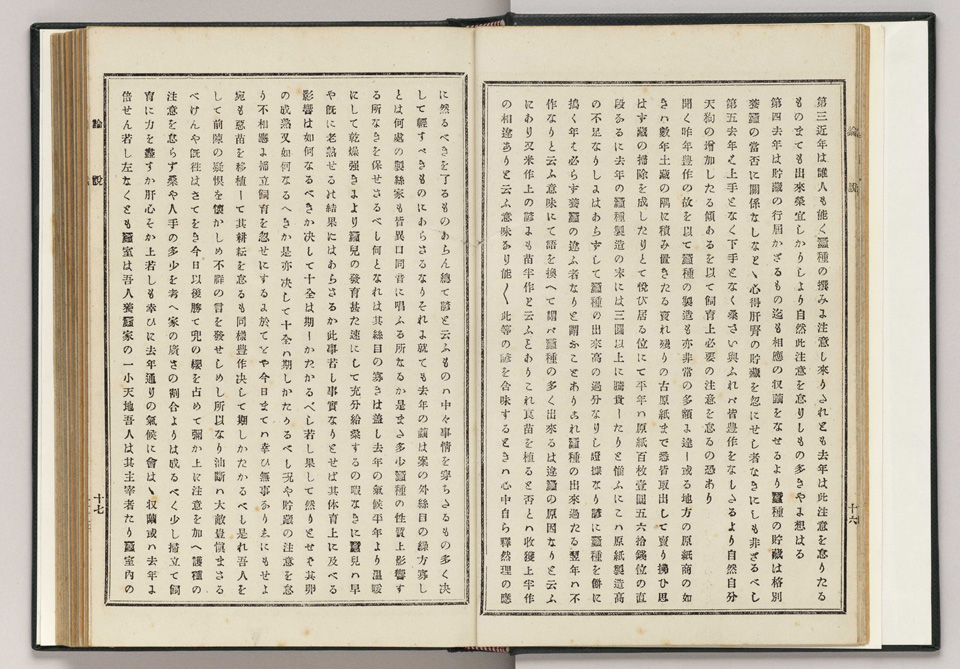 論說
十六
第三近年は誰人も能く蠶種の撰みよ注意し來りされども去年は此注意を怠りたる
ものまても出來榮宜しかりしより自然此注意を怠りしもの多きやよ想はる
第四去年は貯藏の行屆かざるもの迄も相應の収繭をなせるより蠶種の貯藏は格別
養蠶の當否に關係なしなど心得肝腎の貯藏を忽にせし者なきにしも非ざるべし
第五去年は上手となく下手となく桑さい與ふれバ皆豊作をなしさるより自然自分
天狗の增加したる傾あるを以て飼育上必要の注意を怠るの恐あり
聞く昨年豊作の故を以て蠶種の製造も亦非常の多額よ達し或る地方の原紙商の如
きハ數年土藏の隅に積み置きたる賣れ殘りの古原紙まで悉皆取出して賣り拂ひ思
はす藏の掃除を成したりとて悅び居る位にて平年ハ原紙百枚壹圓五六拾錢位の直
段なるに去年の蠶種製造の末には三圓以上に騰貴したりと惟ふにこハ原紙製造高
の不足なりしよはあらずして蠶種の出來高の過分なりし證據なり諺に蠶種を餅に
搗く年え必らす養蠶の違ふ者なりと謂かことありされ蠶種の出來過たる翌年ハ不
作なりと云ふ意味にて語を換へて謂バ蠶種の多く出來るは違蠶の原因なりと云ふ
にあり又米作上の諺よも苗半作と云ふとありこれ良苗を植ると否とハ收獲上半作
の相違ありと云ふ意味あり能く〱此等の諺を含味するときハ心中自ら釋然理の應
に然るべきを了るものあらん總て諺と云ふものハ中々事情を穿ちさるもの多く決
して輕すべきものにあらさるなりそれよ就ても去年の繭は案の外絲目の繰方寡し
とは何處の製絲家も皆異口同音に唱ふる所なるか是まさ多少蠶種の性質上影響す
る所なきを保せさるべし何となれは其絲目の寡きは蓋し去年の氣候平年より溫暖
にして乾燥强きまより蠶兒の發育甚た速にして充分給桑するの暇なきに蠶兒ハ早
や既に老熟せるれ結果にはあらさるか此事若し事實なりとせば其体育上に及べる
影響は如何なるべきか決して十全は期しかたかるべし若し果して然りとせそ其卵
の成熟又如何なるへきか是亦決して十全ハ期しかたりるべし況や貯藏の注意を怠
り不相應よ掃立飼育を忽せにするよ於てをや今日まてハ幸ひ無事ありゑにもせよ
宛も惡苗を移植して其耕耘を怠るも同樣豊作决して期しかたかるべし是れ吾人を
して前陳の疑惧を懷かしめ不祥の言を發せしめし所以なり油斷ハ大敵豊愼まさる
べけんや既往はさてをき今日以後勝て兜の纓を占めて彌か上に注意を加へ護種の
注意を怠らず桑や人手の多少を考へ家の廣さの割合よりは成るべく少し掃立て飼
育に力を盡すか肝心そか上若しも幸ひに去年通りの氣候に會はゝ収繭或ハ去年よ
倍せん若し左なくとも蠶室は吾人養蠶家の一小天地吾人は其主宰者たり蠶室內の
論說
十七